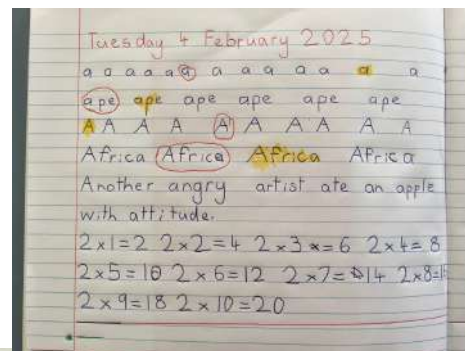 Tuesday 4 February 2025
a a a a a a a a a a a a a
ape ape ape ape ape ape
A A A A A A A A A A
Africa Africa Africa Africa
Another angry artist ate an apple
with attitude.
2x1=2 2x2=4 2x3=6 2x4=8
2x5=10 2x6=12 2x7=14 2x8=
2x9=18 2x10=20